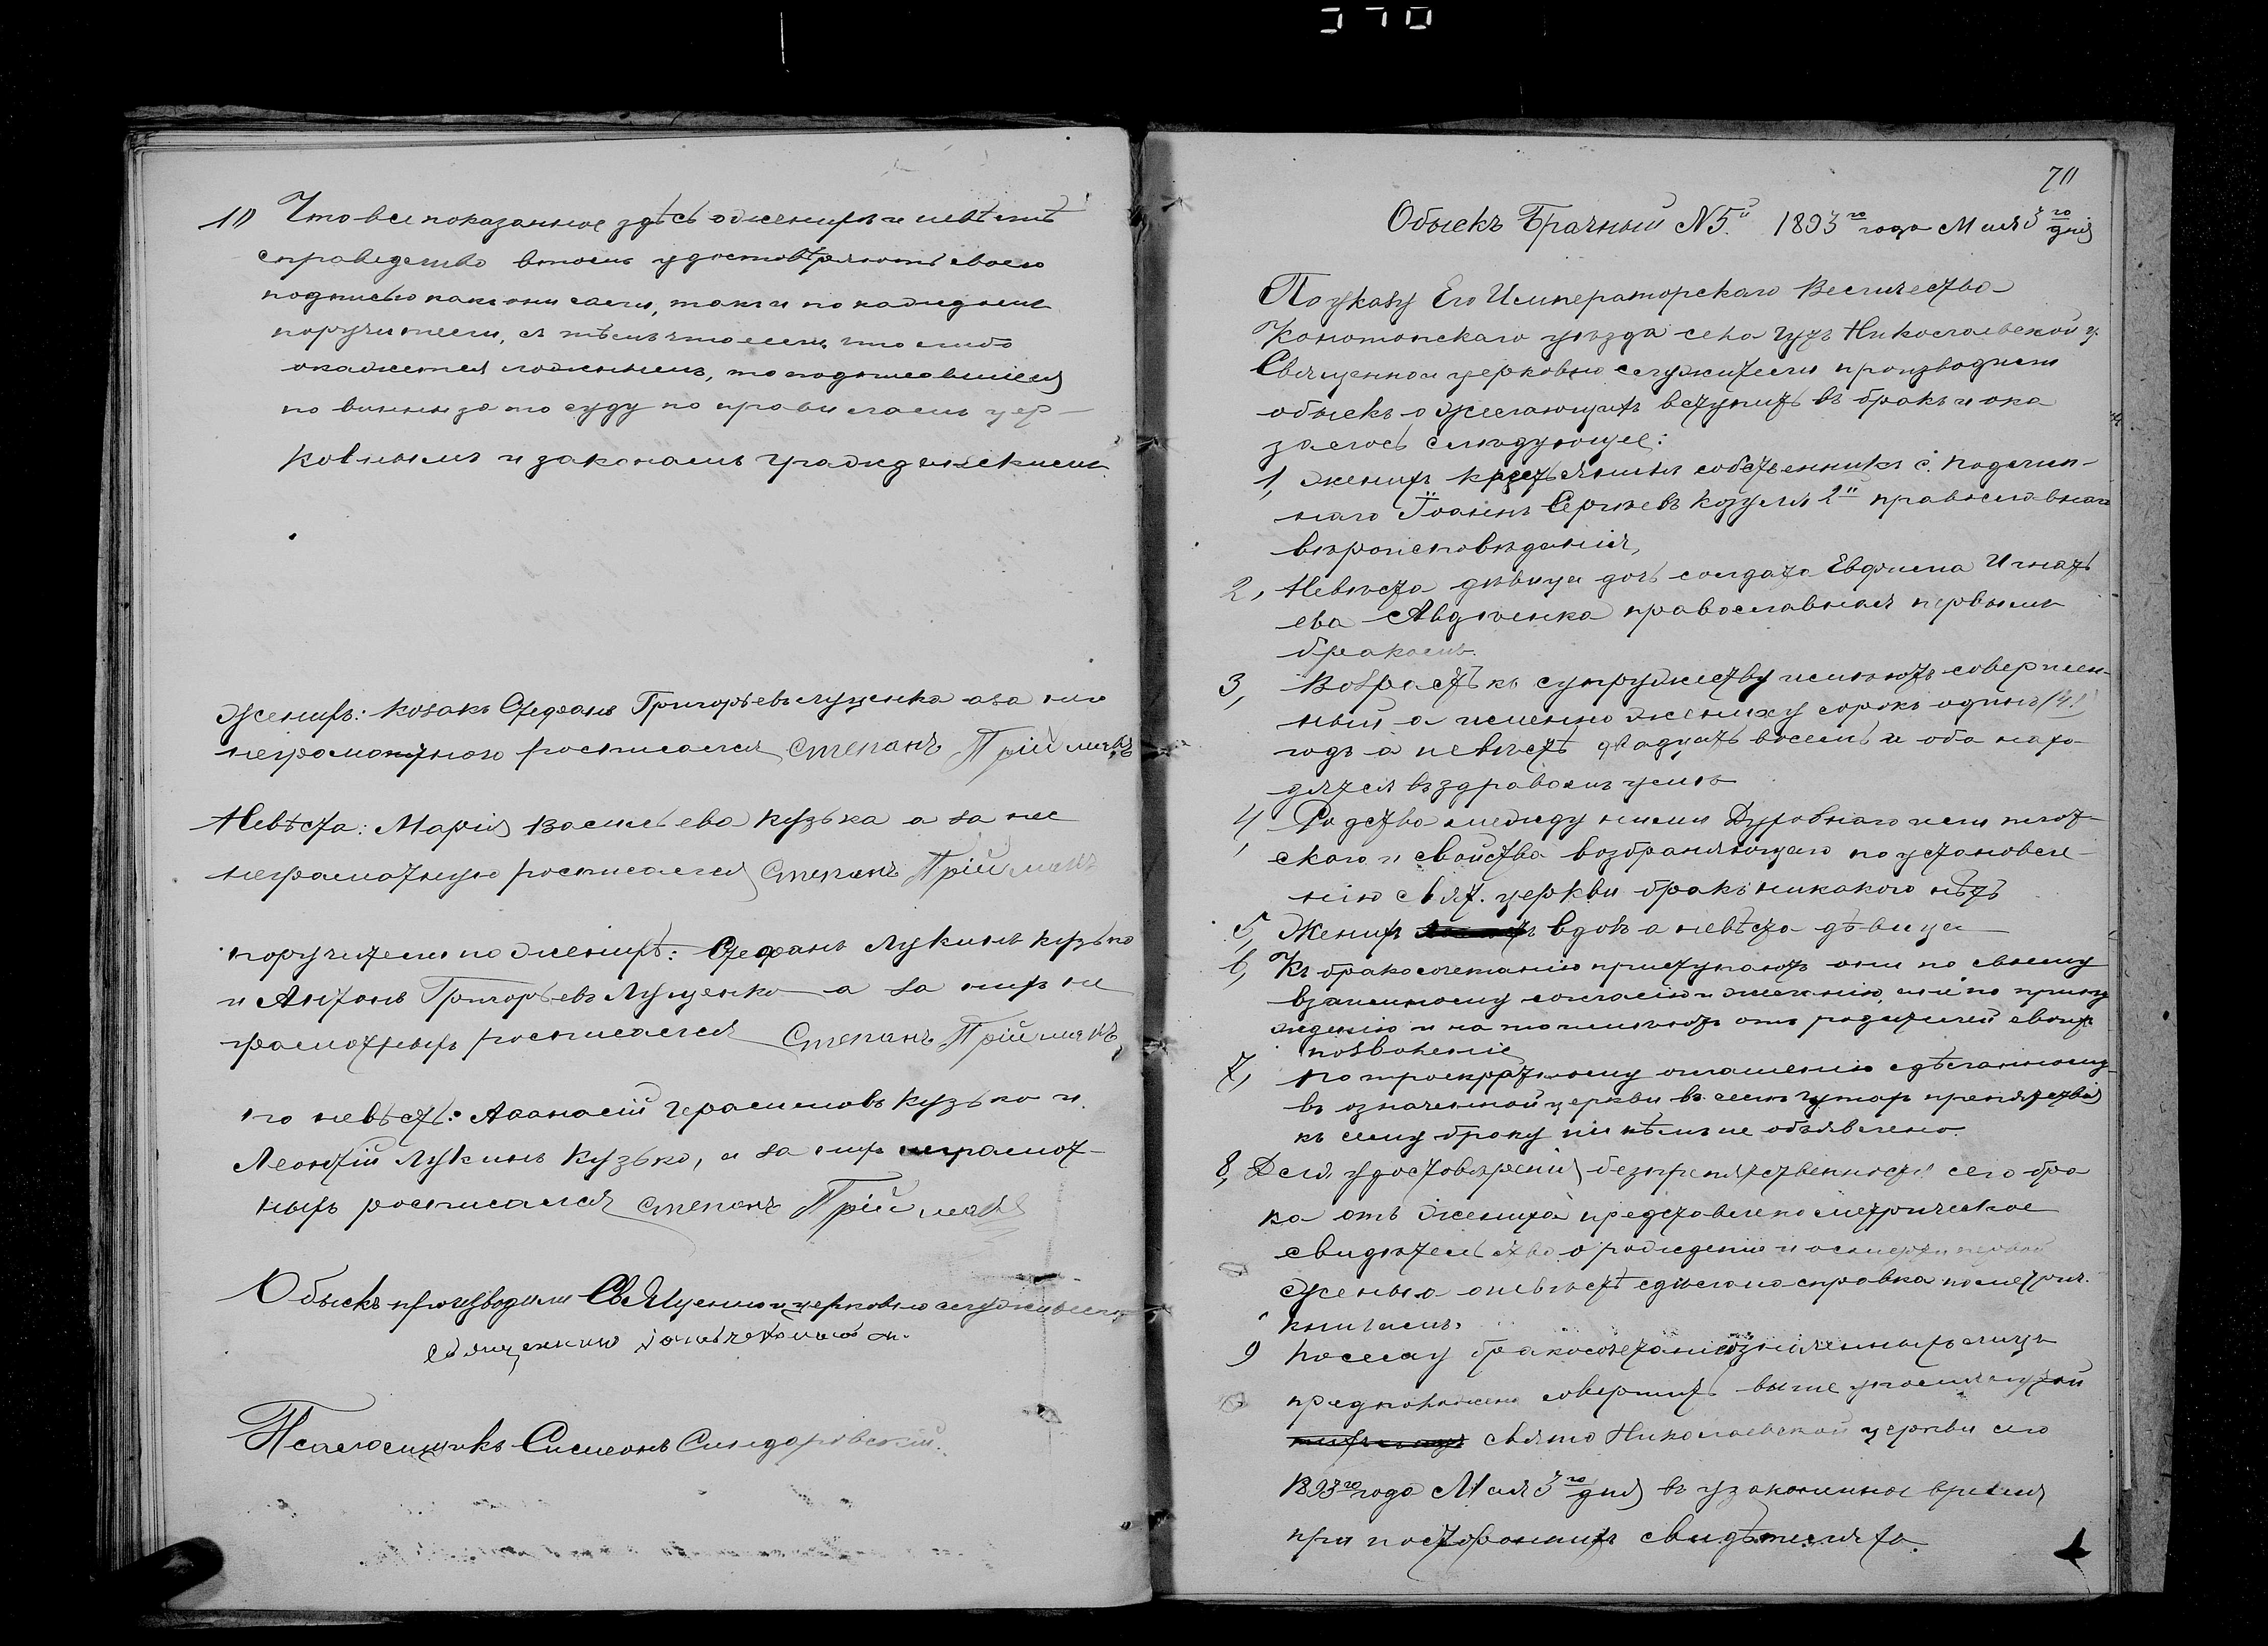 10 Что все показанное здѣсь о женихѣ и невѣстѣ
справедливо втомъ удостовѣряютъ своею
подписью какъ они сами, такъ и по каждомъ
поручители, съ тѣмъ что если что либо
окажется ложнымъ, то подписавшіеся
повинны за то суду по правиламъ цер-
ковнымъ и законамъ гражданскимъ
Женихъ: козакъ Стефанъ Григорьевъ Луценка а за него
неграмотного росписался Степанъ Пріймакъ
Невѣста: Марія Васильева Кузька а за нее
неграмотную росписался Степанъ Пріймакъ
поручители по женихѣ: Стефанъ Лукинъ Кузько
и Антонъ Григорьевъ Луценко а за нихъ не
грамотныхъ росписался Степанъ Пріймакъ
по невѣстѣ: Аѳанасій Герасимовъ Кузько и
Леонтій Лукинъ Кузько, а за нихъ неграмот-
ныхъ росписался Степанъ Пріймакъ
Обыскъ производили Священно и церковно служители
священникъ
Псаломщикъ Симеонъ
70
Обыскъ Брачный N 5й 1893го года Мая 3го дня
По указу Его Императорскаго Величества
Конотопскаго уѣзда села Гутъ Николаевской ц.
Священно и церковно служители производили
обыскъ о желающихъ вступить въ бракъ и ока
залось слѣдующее:
1, Женихъ крестьянинъ собственникъ с. Подлип-
наго Іоаннъ Сергѣевъ Козуля 2й православнаго
вѣроисповѣданія,
2, Невѣста дѣвица дочь солдата Евфима Игнать
ева Авдѣенка православная первымъ
бракомъ.
3, Возрастъ къ супружеству имѣютъ совершен-
ный а именно жениху сорокъ одинъ (41)
годъ а невѣстѣ двадцать восемь и оба нахо-
дятся въ здравомъ умѣ
4, Родства между ними Духовнаго или плот-
скаго и свойства возбраняющаго по установле-
нію свят. церкви бракъ никакого нѣтъ
5, Женихъ вдовъ а невѣста дѣвица
6, Къ бракосочетанію приступаютъ они по своему
взаимному согласію и желанію, а не по прину
жденію и на то имѣютъ отъ родителей своихъ
позволеніе
7, По троекратному оглашенію сдѣланному
въ означенной церкви въ селѣ Гутах препятствія
къ сему браку ни кѣмъ не объявлено.
8, Для удостовѣренія безпрепятственности сего бра
ка отъ жениха представлено метрическое
свидѣтельство о рожденіи и о смерти первой
жены а о невѣстѣ сдѣлана справка по метрич.
книгамъ.
9 По сему бракосочетаніе означенныхъ лицъ
предположено совершить въ выше упомянутой
свято Николаевской церкви сего
1893го года Мая 3го дня въ узаконенное время
при постороннихъ свидѣтеляхъ.